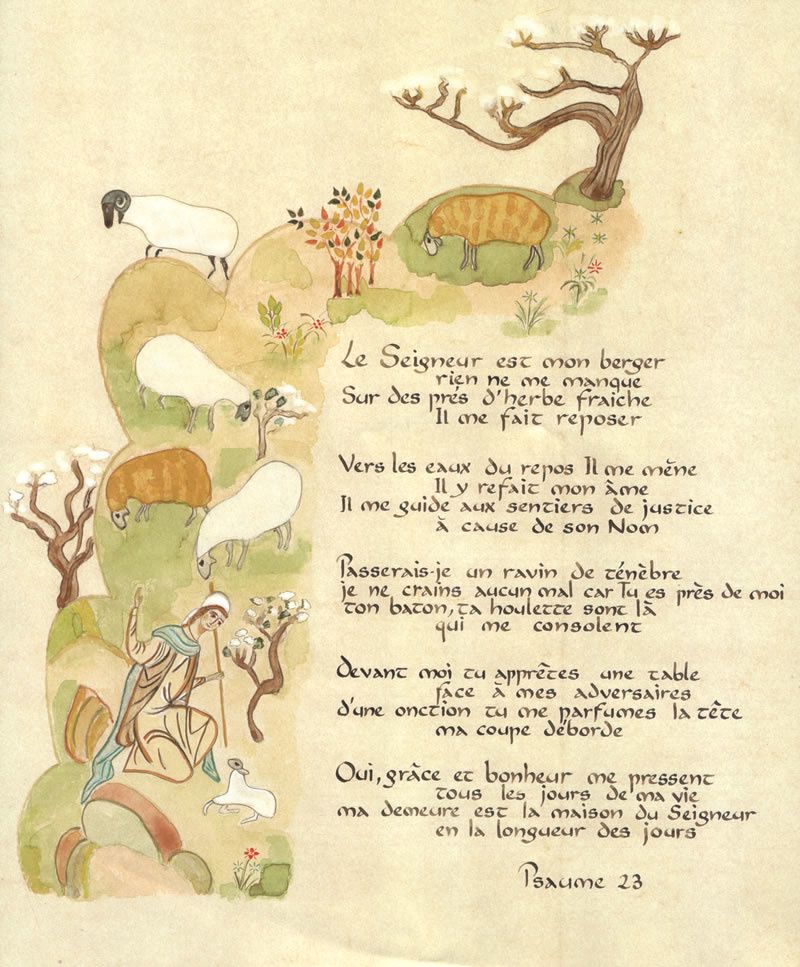 Le Seigneur est mon berger
rien ne me manque
Sur des prés d'herbe fraiche
Il me fait reposer
Vers les eaux du repos Il me mène
Il y refait mon âme
Il me guide aux sentiers de justice
à cause de son Nom
Passerais-je un ravin de ténèbre
je ne crains aucun mal car Tu es près de moi
ton baton, ta houlette sont là
qui me consolent
Devant moi tu apprêtes une table
face à mes adversaires
d'une onction tu me parfumes la tête
ma coupe déborde
Oui, grâce et bonheur me pressent
tous les jours de ma vie
ma demeure est la maison du Seigneur
en la longueur des jours
Psaume 23